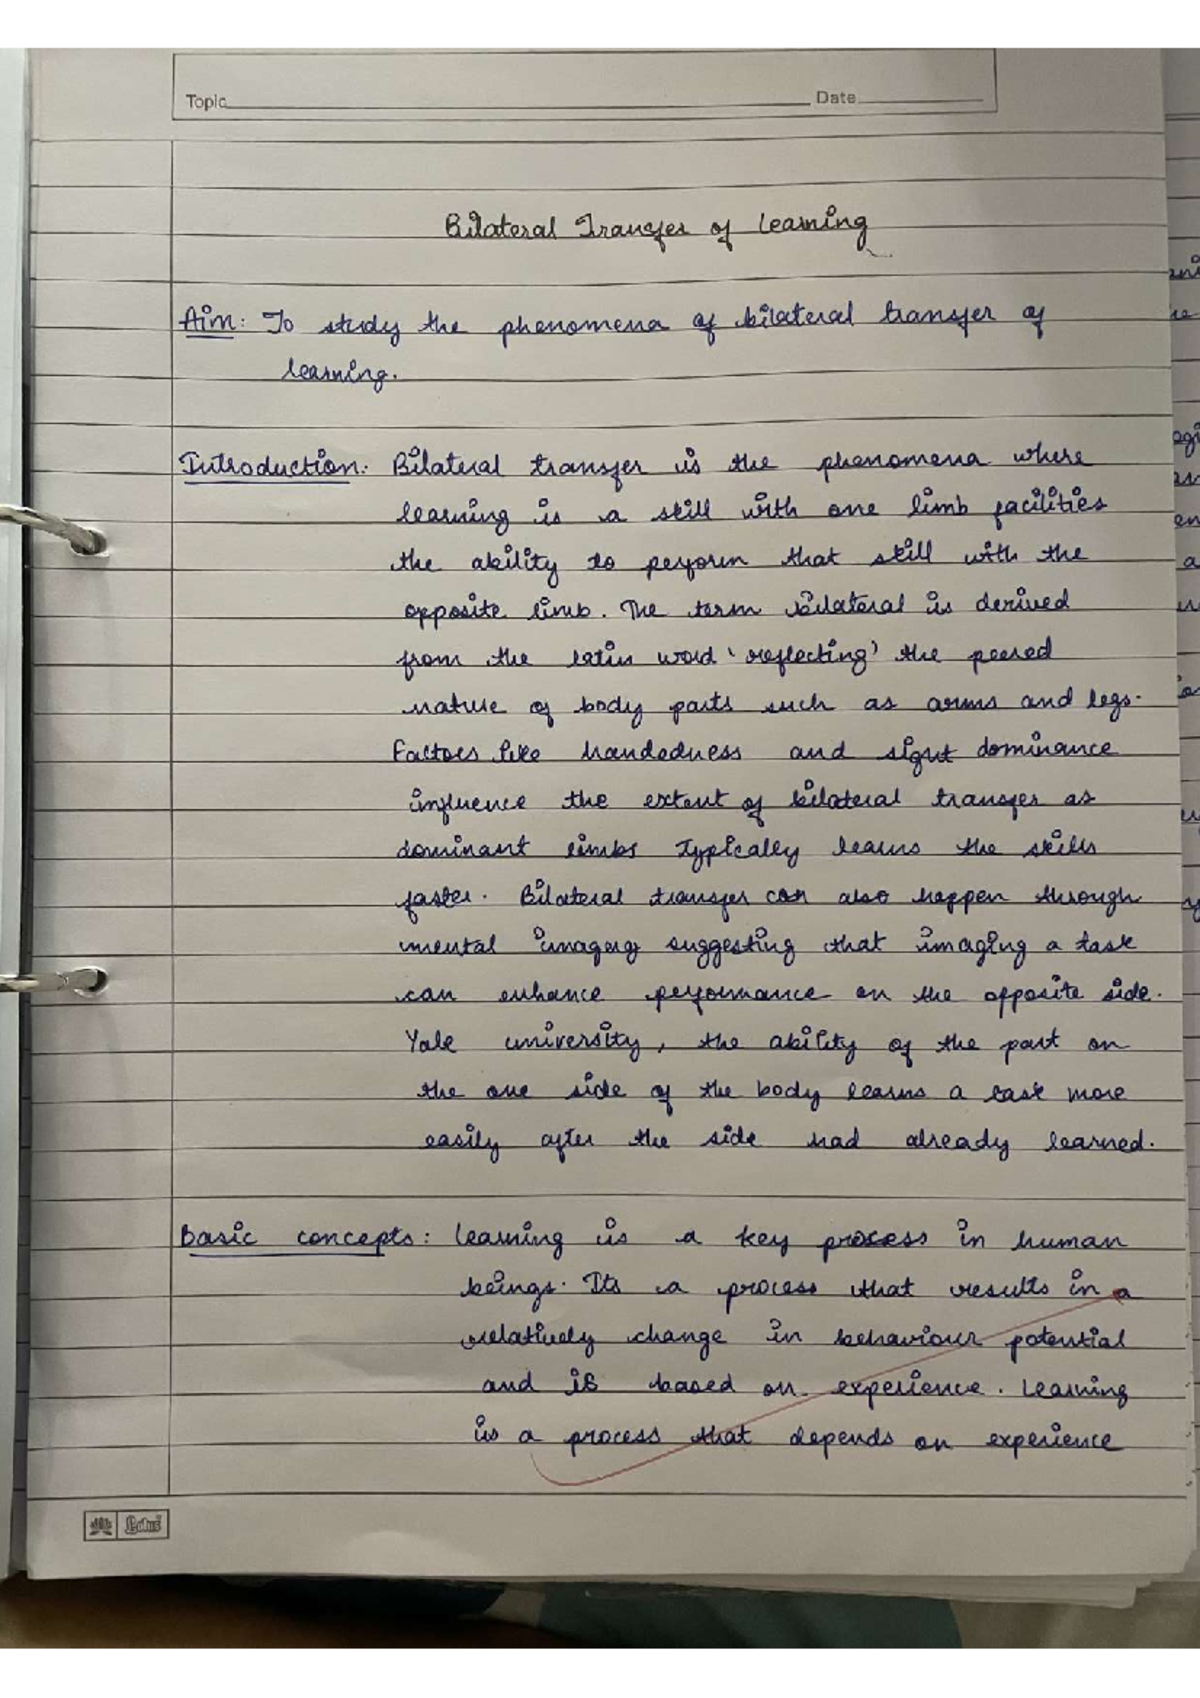 Topic Date
Bilateral Transfer of Learning
Aim: To study the phenomena of bilateral transfer of
learning.
Introduction: Bilateral transfer is the phenomena where
learning is a skill with one limb facilities
the ability to perform that skill with the
opposite limb. The term bilateral is derived
from the latin word 'reflecting' the peered
nature of body parts such as arms and legs.
Factors like handedness and sight dominance
influence the extent of bilateral transfer as
dominant limbs typically learns the skills
faster. Bilateral transfer can also happen through
mental imagery suggesting that imaging a task
can enhance performance on the opposite side.
Yale university, the ability of the part on
the one side of the body learns a task more
easily after the side had already learned.
Basic concepts: Learning is a key process in human
beings. Its a process that results in a
relatively change in behaviour potential
and is based on experience. Learning
is a process that depends on experience
Lotus